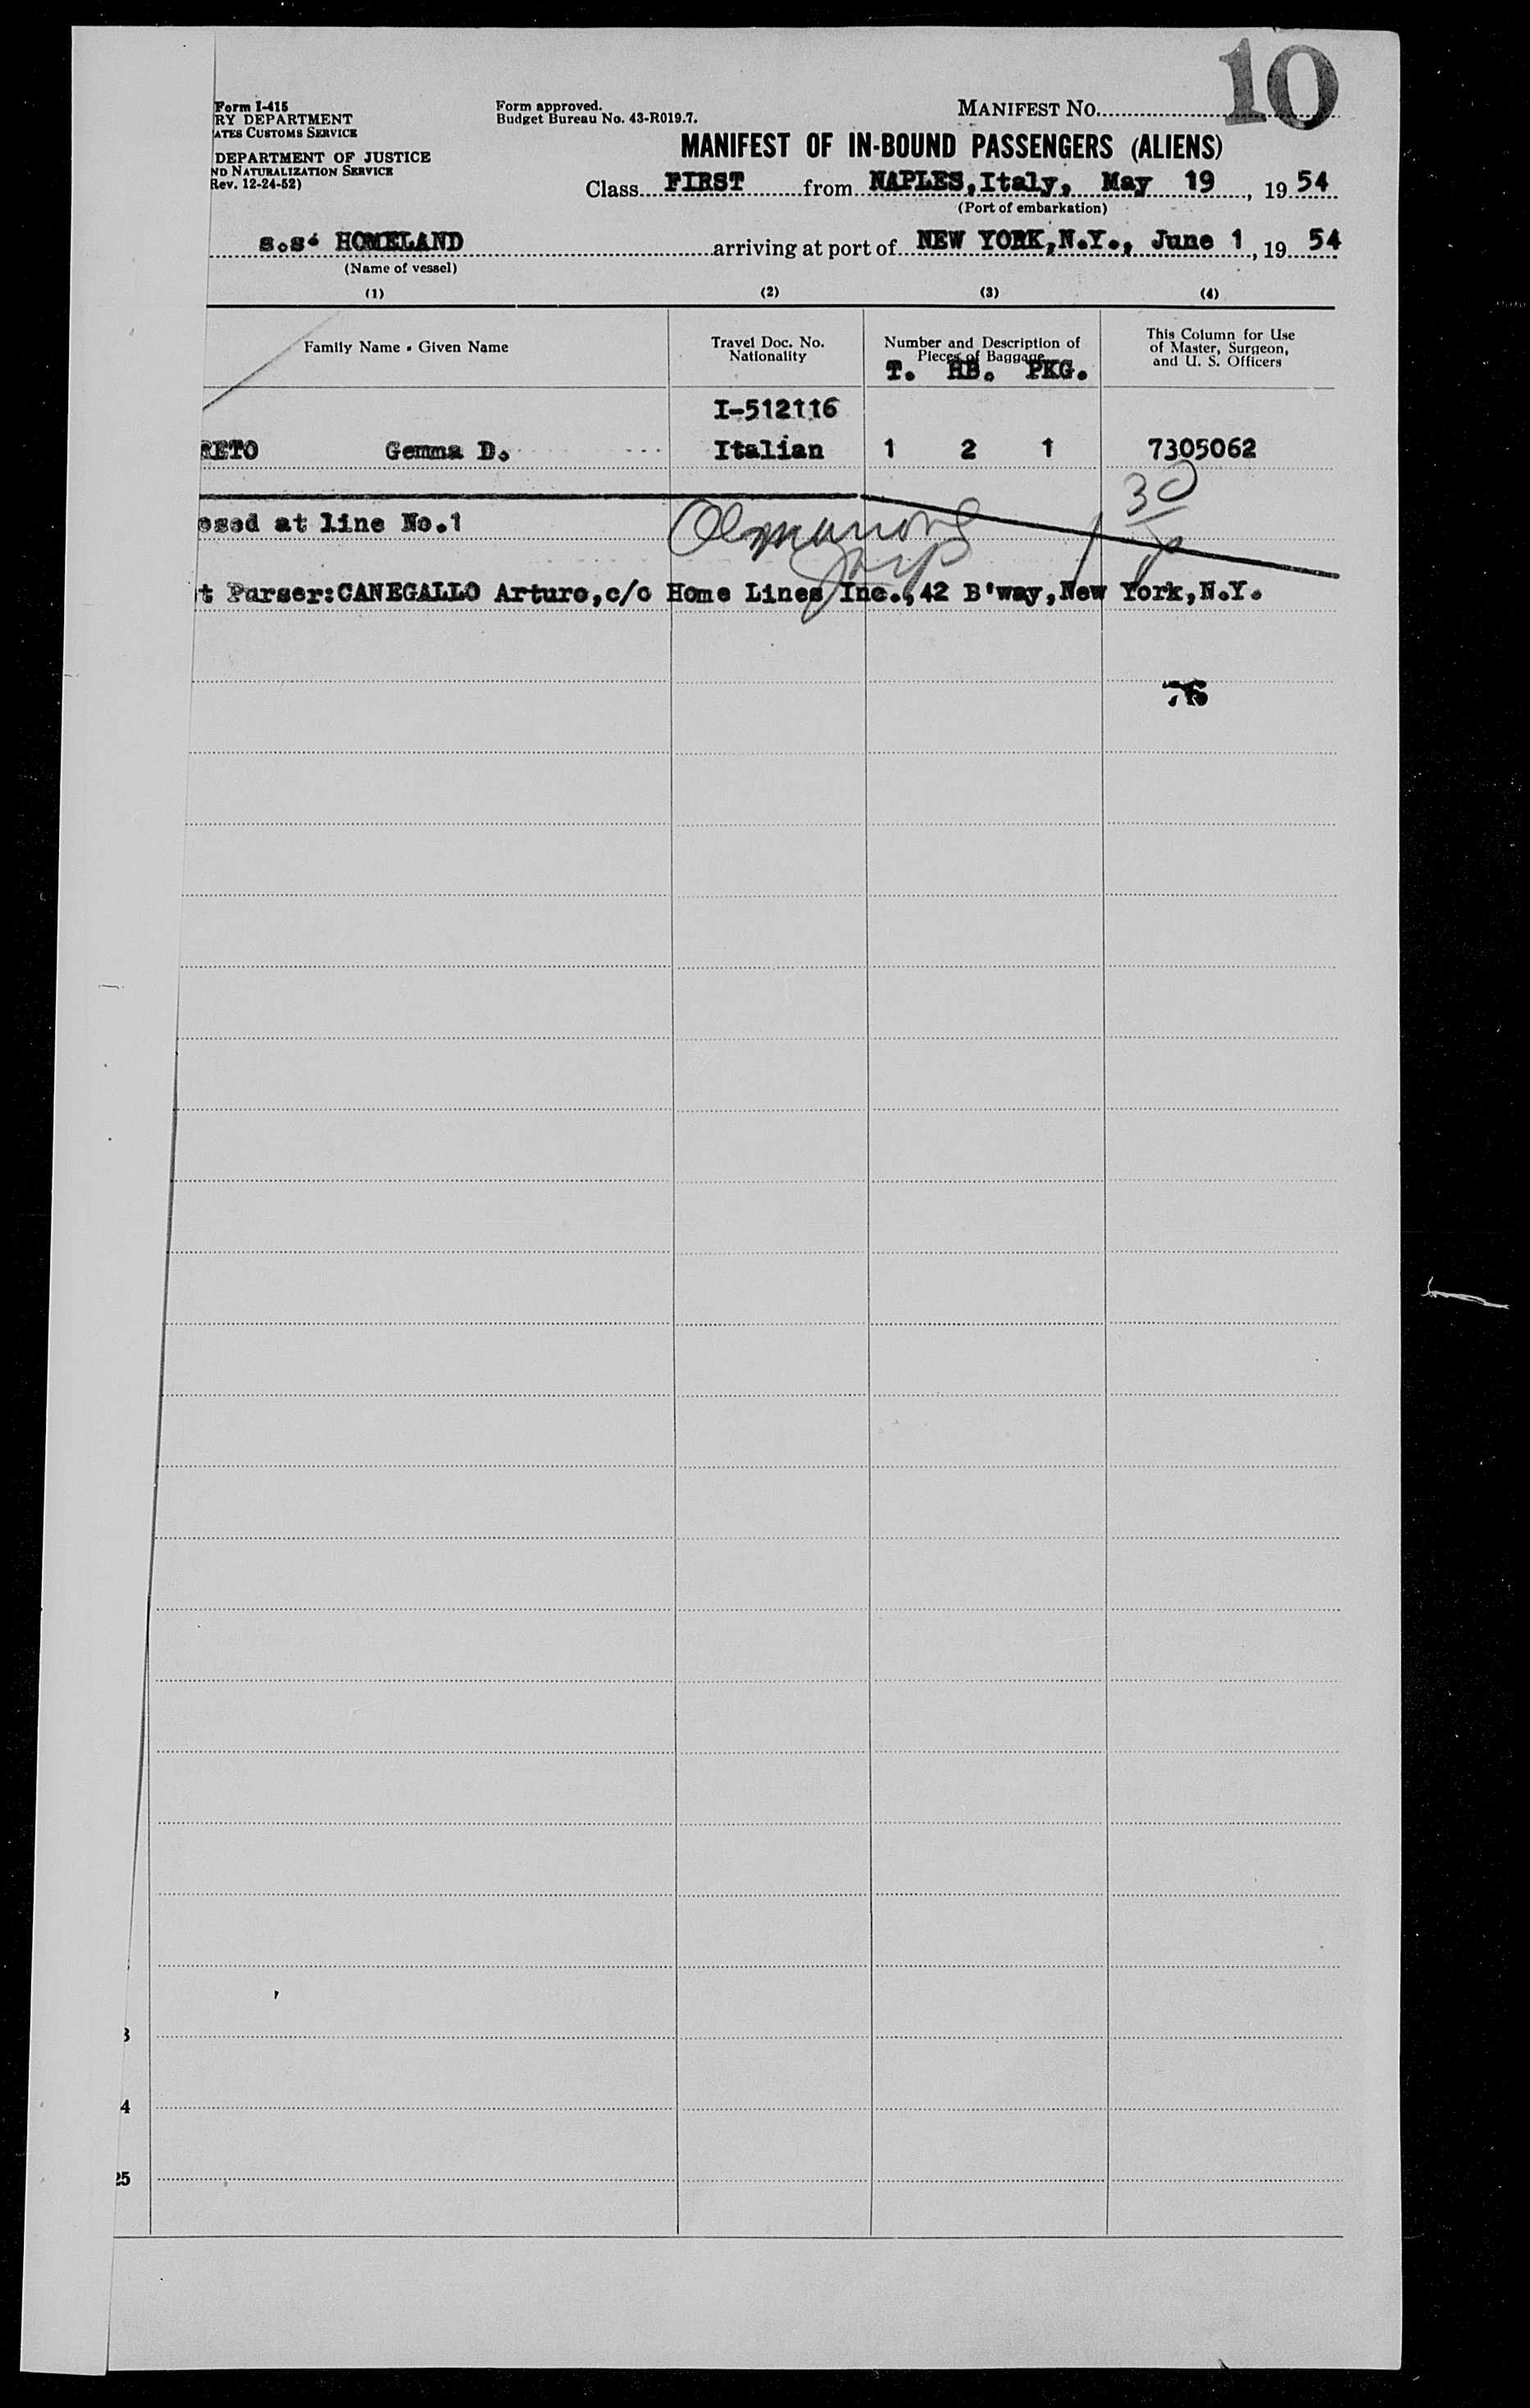 10
Form I-415
RY DEPARTMENT
ATES CUSTOMS SERVICE
DEPARTMENT OF JUSTICE
ND NATURALIZATION SERVICE
Rev. 12-24-52)
Form approved.
Budget Bureau No. 43-R019.7.
MANIFEST NO.
MANIFEST OF IN-BOUND PASSENGERS (ALIENS)
Class FIRST from NAPLES, Italy, May 19, 19 54
(Port of embarkation)
s.s. HOMELAND arriving at port of NEW YORK, N.Y., June 1, 19 54
(Name of vessel)
(1) (2) (3) (4)
Family Name - Given Name
Travel Doc. No.
Nationality
Number and Description of
Pieces of Baggage
T. HB. PKG.
This Column for Use
of Master, Surgeon,
and U. S. Officers
I-512116
RETO Gemma D. Italian 1 2 1 7305062
30
osed at line No.1
t Purser:CANEGALLO Arturo,c/o Home Lines Inc.,42 B'way,New York,N.Y.
76
3
4
25